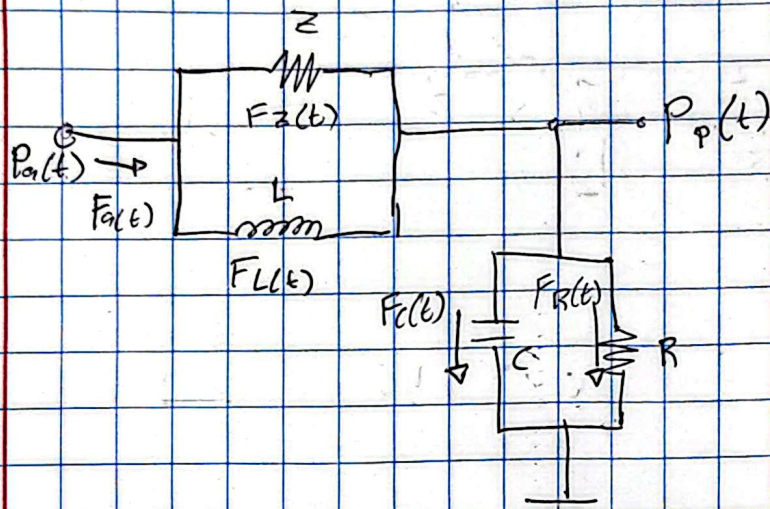 Z
Fz(t)
Pa(t)
Fa(t)
L
FL(t)
Pp(t)
Fc(t)
FR(t)
C
R